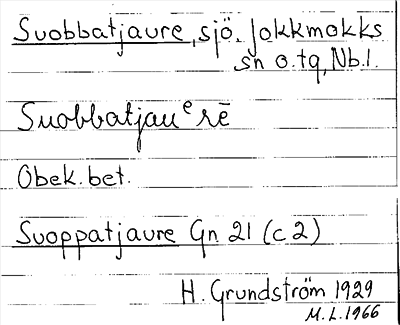 Suobbatjaure, sjö. Jokkmokks
sn o. tg, Nb.l.
Suobbatjauᵉrē
Obek. bet.
Suoppatjaure Gn 21 (c2)
H. Grundström 1929
M.L. 1966